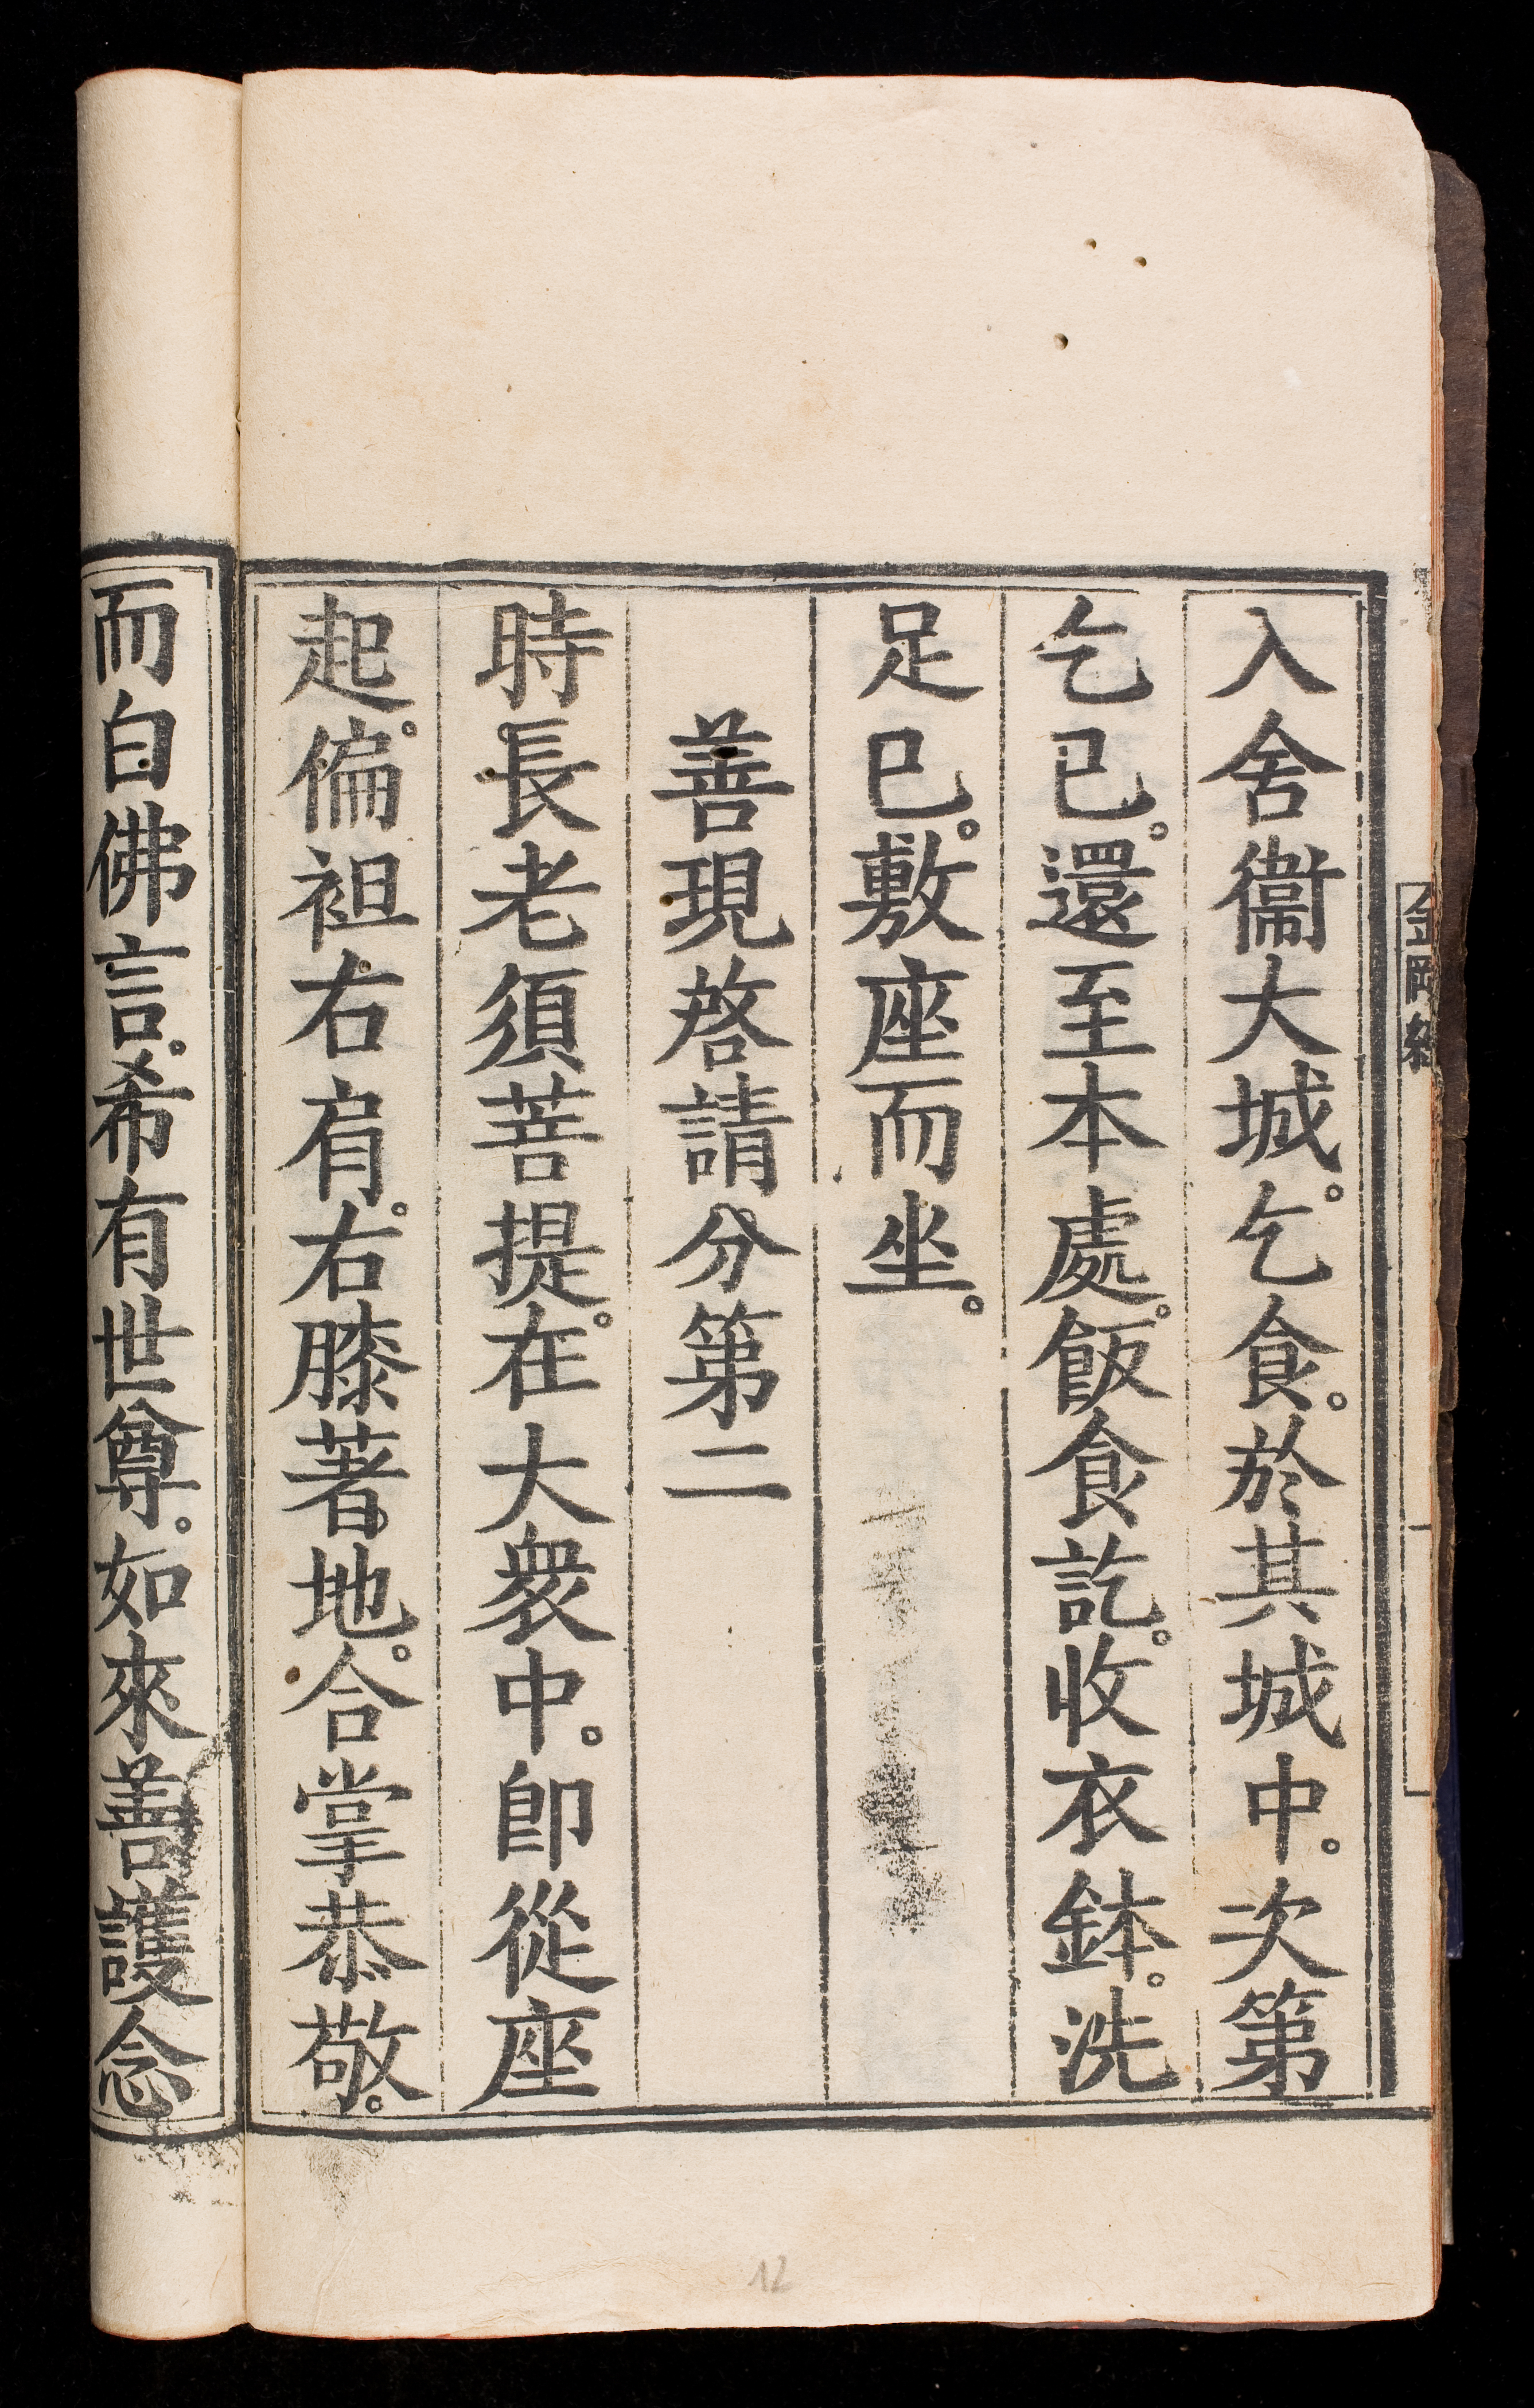 金剛經
入舍衞大城。乞食。於其城中。次第
乞已。還至本處。飯食訖。收衣鉢。洗
足已。敷座而坐。
善現啓請分第二
時長老須菩提。在大衆中。卽從座
起。偏袒右肩。右膝著地。合掌恭敬。
而白佛言。希有世尊。如來善護念
12